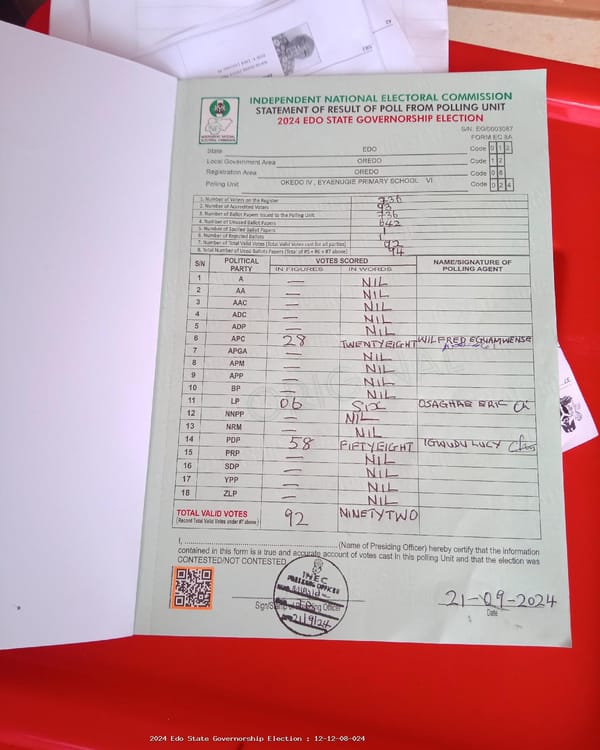 INDEPENDENT NATIONAL ELECTORAL COMMISSION
STATEMENT OF RESULT OF POLL FROM POLLING UNIT
2024 EDO STATE GOVERNORSHIP ELECTION
S/N: EG/0003087
FORM EC 8A
State EDO Code 0 1 2
Local Government Area OREDO Code 1 2
Registration Area OREDO Code 0 8
Polling Unit OKEDO IV, EYAENUGIE PRIMARY SCHOOL VI Code 0 2 4
1. Number of Voters on the Register 736
2. Number of Accredited Voters 93
3. Number of Ballot Papers Issued to the Polling Unit 736
4. Number of Unused Ballot Papers 642
5. Number of Spoiled Ballot Papers 1
6. Number of Rejected Ballots 1
7. Number of Total Valid Votes (Total Valid Votes cast for all parties) 92
8. Total Number of Used Ballot Papers (Total of #5 + #6 + #7 above) 94
S/N POLITICAL PARTY VOTES SCORED NAME/SIGNATURE OF POLLING AGENT
IN FIGURES IN WORDS
1 A — NIL
2 AA — NIL
3 AAC — NIL
4 ADC — NIL
5 ADP — NIL
6 APC 28 TWENTYEIGHT WILFRED EGHAMWENSE
7 APGA — NIL
8 APM — NIL
9 APP — NIL
10 BP — NIL
11 LP 06 SIX OSAGHAE ERIC
12 NNPP — NIL
13 NRM — NIL
14 PDP 58 FIFTYEIGHT IGWUDU LUCY
15 PRP — NIL
16 SDP — NIL
17 YPP — NIL
18 ZLP — NIL
TOTAL VALID VOTES 92 NINETYTWO
(Record Total Valid Votes under #7 above)
I, (Name of Presiding Officer) hereby certify that the information
contained in this form is a true and accurate account of votes cast in this polling Unit and that the election was
CONTESTED/NOT CONTESTED.
INEC
PRESIDING OFFICER
21/9/24
Sign/Stamp of Presiding Officer
21-09-2024
Date
2024 Edo State Governorship Election : 12-12-08-024